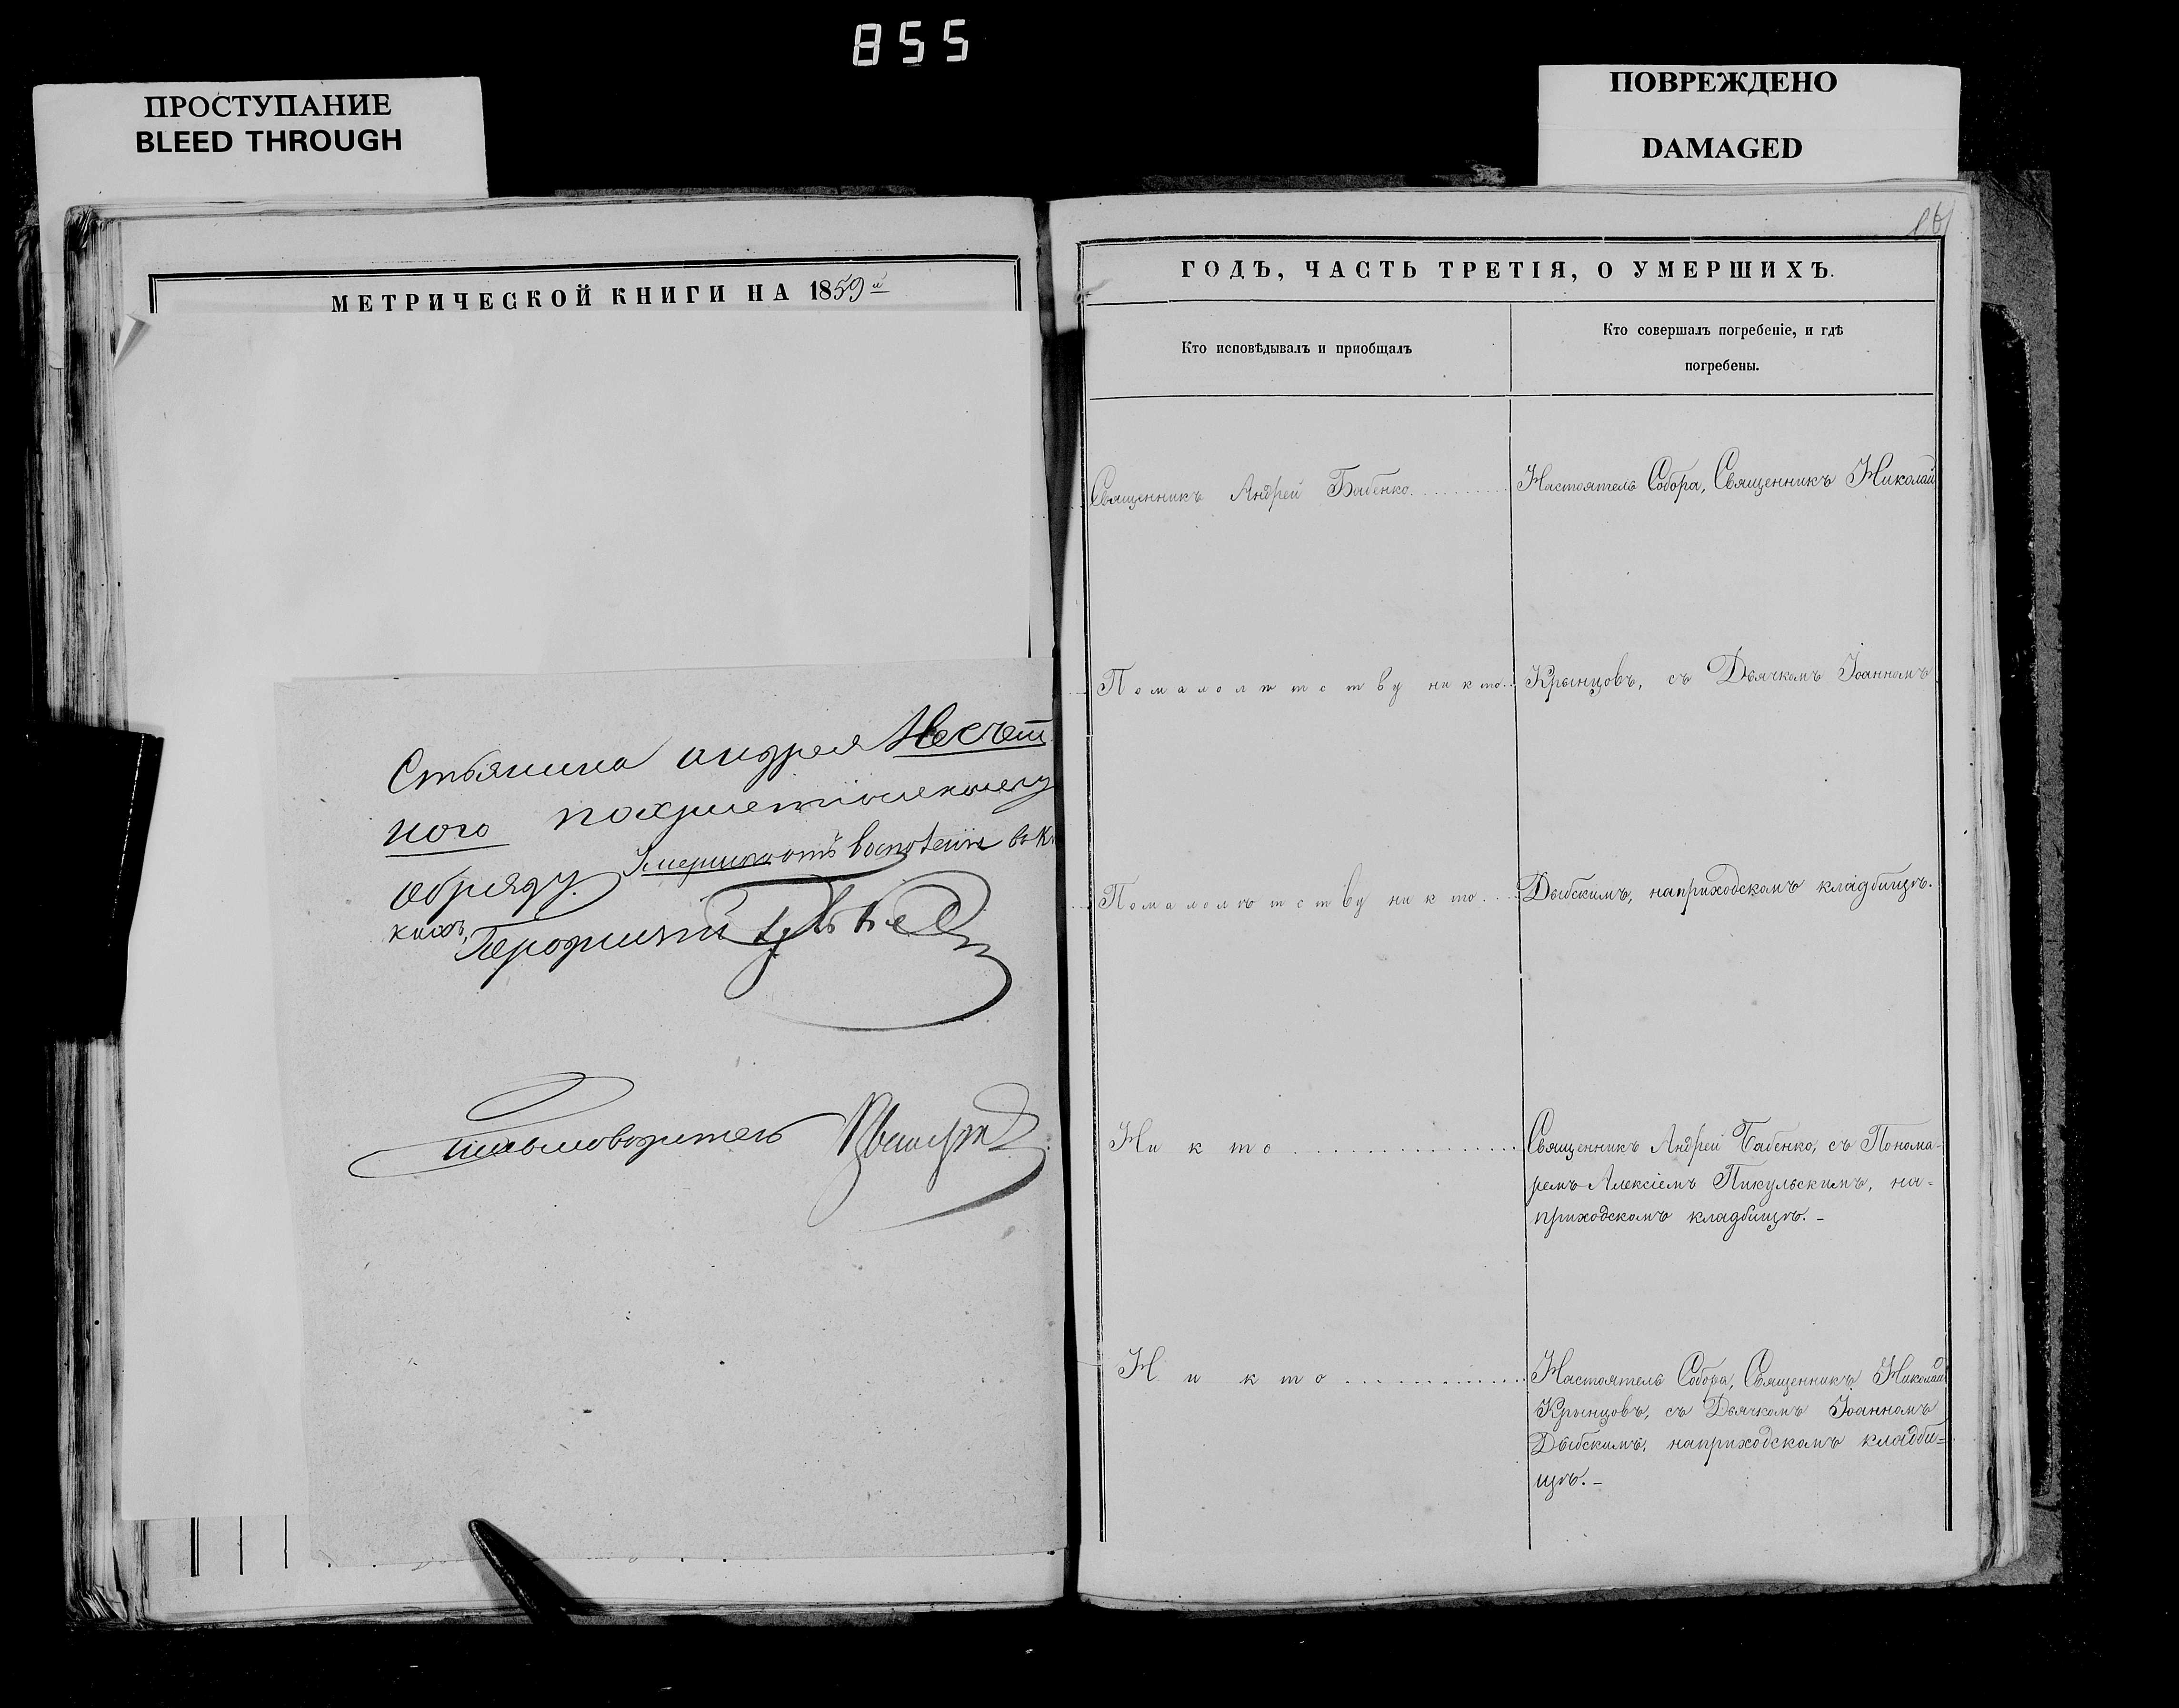 855
ПРОСТУПАНИЕ
BLEED THROUGH
ПОВРЕЖДЕНО
DAMAGED
МЕТРИЧЕСКОЙ КНИГИ НА 1859й
Стьянина андрея Несчет
ного похристіянскому
обряду. Умершаго отъ
кихъ,
Письмоводитель
ГОДЪ, ЧАСТЬ ТРЕТІЯ, О УМЕРШИХЪ.
Кто исповѣдывалъ и пріобщалъ
Кто совершалъ погребеніе, и гдѣ
погребены.
Священникъ Андрей Бабенко.
Настоятель Собора, Священникъ Николай
Помалолѣтству никто
Крынцовъ, съ Дьячкомъ Іоанномъ
Помалолѣтству никто
Дыбскимъ, наприходскомъ кладбищѣ.
Никто
Священникъ Андрей Бабенко, съ Понома-
ремъ Алексіемъ Пикульскимъ, на-
приходскомъ кладбищѣ.-
Никто
Настоятель Собора, Священникъ Николай
Крынцовъ, съ Дьячкомъ Іоанномъ
Дыбскимъ, наприходскомъ кладби-
щѣ.-